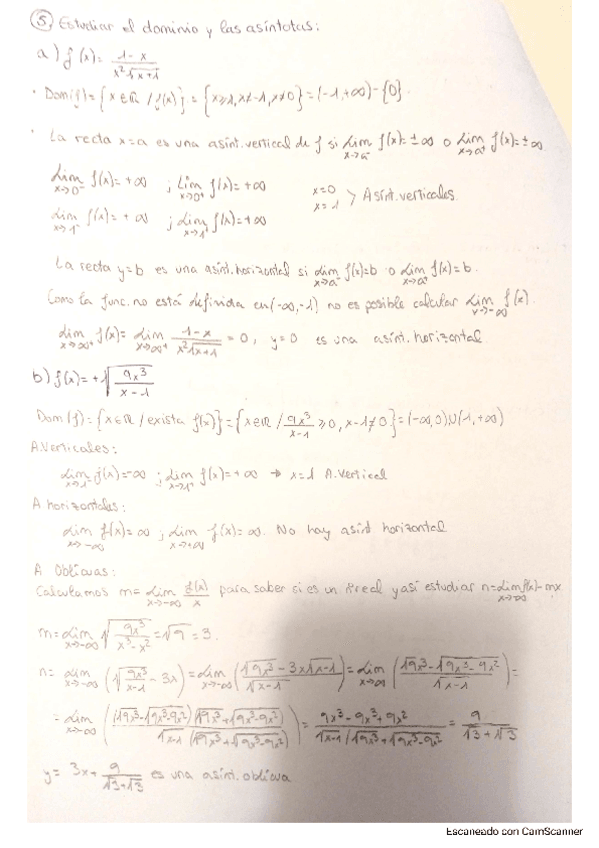 5 Estudiar el dominio y las asíntotas:
a) f(x)= (1-x)/(x²√(x+1))
· Dom(f)={x∈ℝ / f(x)}={x≥1, x≠-1, x≠0}=(-1,+∞)-{0}.
· La recta x=a es una asínt.vertical de f si lim x→a⁻ f(x)=±∞ o lim x→a⁺ f(x)=±∞
lim x→0⁻ f(x)=+∞ ; lim x→0⁺ f(x)=+∞ x=0
lim x→1⁻ f(x)=+∞ ; lim x→1⁺ f(x)=+∞ x=-1 > Asínt.verticales.
La recta y=b es una asínt.horizontal si lim x→a⁻ f(x)=b o lim x→a⁺ f(x)=b.
Como la func. no está definida en (-∞,-1) no es posible calcular lim x→-∞ f(x).
lim x→∞⁺ f(x)= lim x→∞⁺ (1-x)/(x²√(x+1)) =0, y=0 es una asínt. horizontal
b) f(x)=+√(9x³/(x-1))
Dom(f)={x∈ℝ / exista f(x)}={x∈ℝ / 9x³/(x-1) ≥0, x-1≠0}=(-∞,0)∪(1,+∞)
A.Verticales:
lim x→1⁻ f(x)=-∞ ; lim x→1⁺ f(x)=+∞ → x=1 A.Vertical
A horizontales:
lim x→-∞ f(x)=∞ ; lim x→+∞ f(x)=∞. No hay asínt horizontal
A Oblicuas:
Calculamos m= lim x→-∞ f(x)/x para saber si es un real y así estudiar n=lim x→∞ f(x)-mx
m=lim x→-∞ √(9x³/(x³-x²)) =√9=3.
n= lim x→-∞ (√(9x³/(x-1)) -3x)=lim x→-∞ ((√9x³-3x√(x-1))/√(x-1))=lim x→∞ ((√9x³-√(9x³-9x²))/√(x-1))=
=lim x→-∞ ((√9x³-√(9x³-9x²))(√9x³+√(9x³-9x²))/(√(x-1)(√9x³+√(9x³-9x²))))= (9x³-9x³+9x²)/(√(x-1)(√9x³+√(9x³-9x²)))= 9/(√3+√3)
y= 3x+ 9/(√3+√3) es una asínt.oblicua
Escaneado con CamScanner